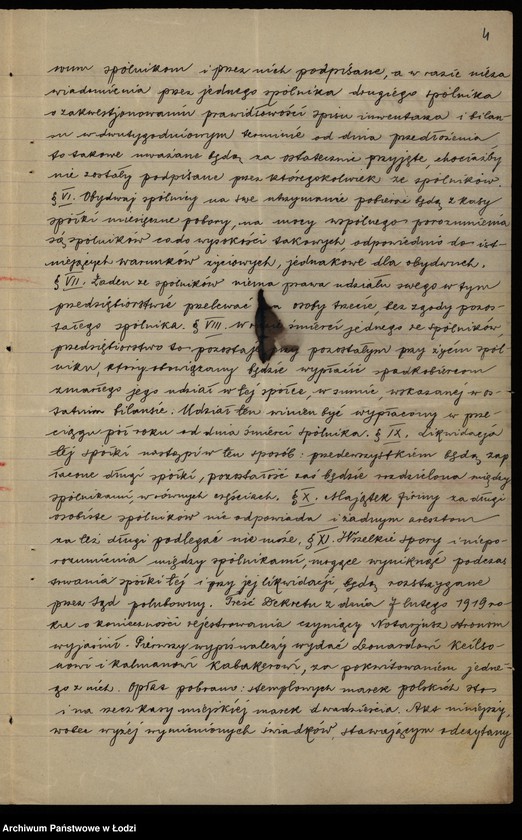 4
wum spólnikom i przez nich podpisane, a w razie nieza
wiadomienia przez jednego spólnika drugiego spólnika
o zakwestjonowaniu prawidłowości spisu inwentarza i bilan-
su w dwutygodniowym terminie od dnia przedłożenia
to takowe uważane będą za ostatecznie przyjęte chociażby
nie zostały podpisane przez któregokolwiek ze spólników.
§ VI. Obydwaj spólnicy na swe utrzymanie pobierać będą z kasy
spółki miesięczne pobory, na mocy wspólnego porozumienia
się spólników co do wysokości takowych, odpowiednio do ist-
niejących warunków życiowych, jednakowe dla obydwuch.
§ VII. Żaden ze spólników niema prawa udziału swego w tym
przedsiębiorstwie przelewać na osoby trzecie, bez zgody pozos-
tałego spólnika. § VIII. W razie śmierci jednego ze spólników
przedsiębiorstwo to pozostaje przy pozostałym przy życiu spól-
niku, który obowiązany będzie wypłacić spadkobiercom
zmarłego jego udział w tej spółce, w sumie, wskazanej w os-
tatnim bilansie. Udział ten winien być wypłacony w prze-
ciągu pół roku od dnia śmierci spólnika. § IX. Likwidacja
tej spółki nastąpi w ten sposób: przedewszystkiem będą zap
łacone długi spółki, pozostałość zaś będzie rozdzielona między
spólnikami, w równych częściach. § X. Majątek firmy za długi
osobiste spólników nie odpowiada i żadnym aresztom
za też długi podlegać nie może. § XI. Wszelkie spory i niepo-
rozumienia między spólnikami, mogące wyniknąć podczas
trwania spółki tej i przy jej likwidacji, będą rozstrzygane
przez Sąd polubowny. Treść Dekretu z dnia 7 lutego 1919 ro-
ku o konieczności rejestrowania czyniący Notarjusz stronom
wyjaśnił. Pierwszy wypis należy wydać Leonardowi Keilso-
nowi i Kalmanowi Kabakerowi, za pokwitowaniem jedne-
go z nich. Opłat pobrano: stemplowych marek polskich sto
i na rzecz kasy miejskiej marek dwadzieścia. Akt niniejszy,
wobec wyżej wymienionych świadków, stawającym odczytany
Archiwum Państwowe w Łodzi